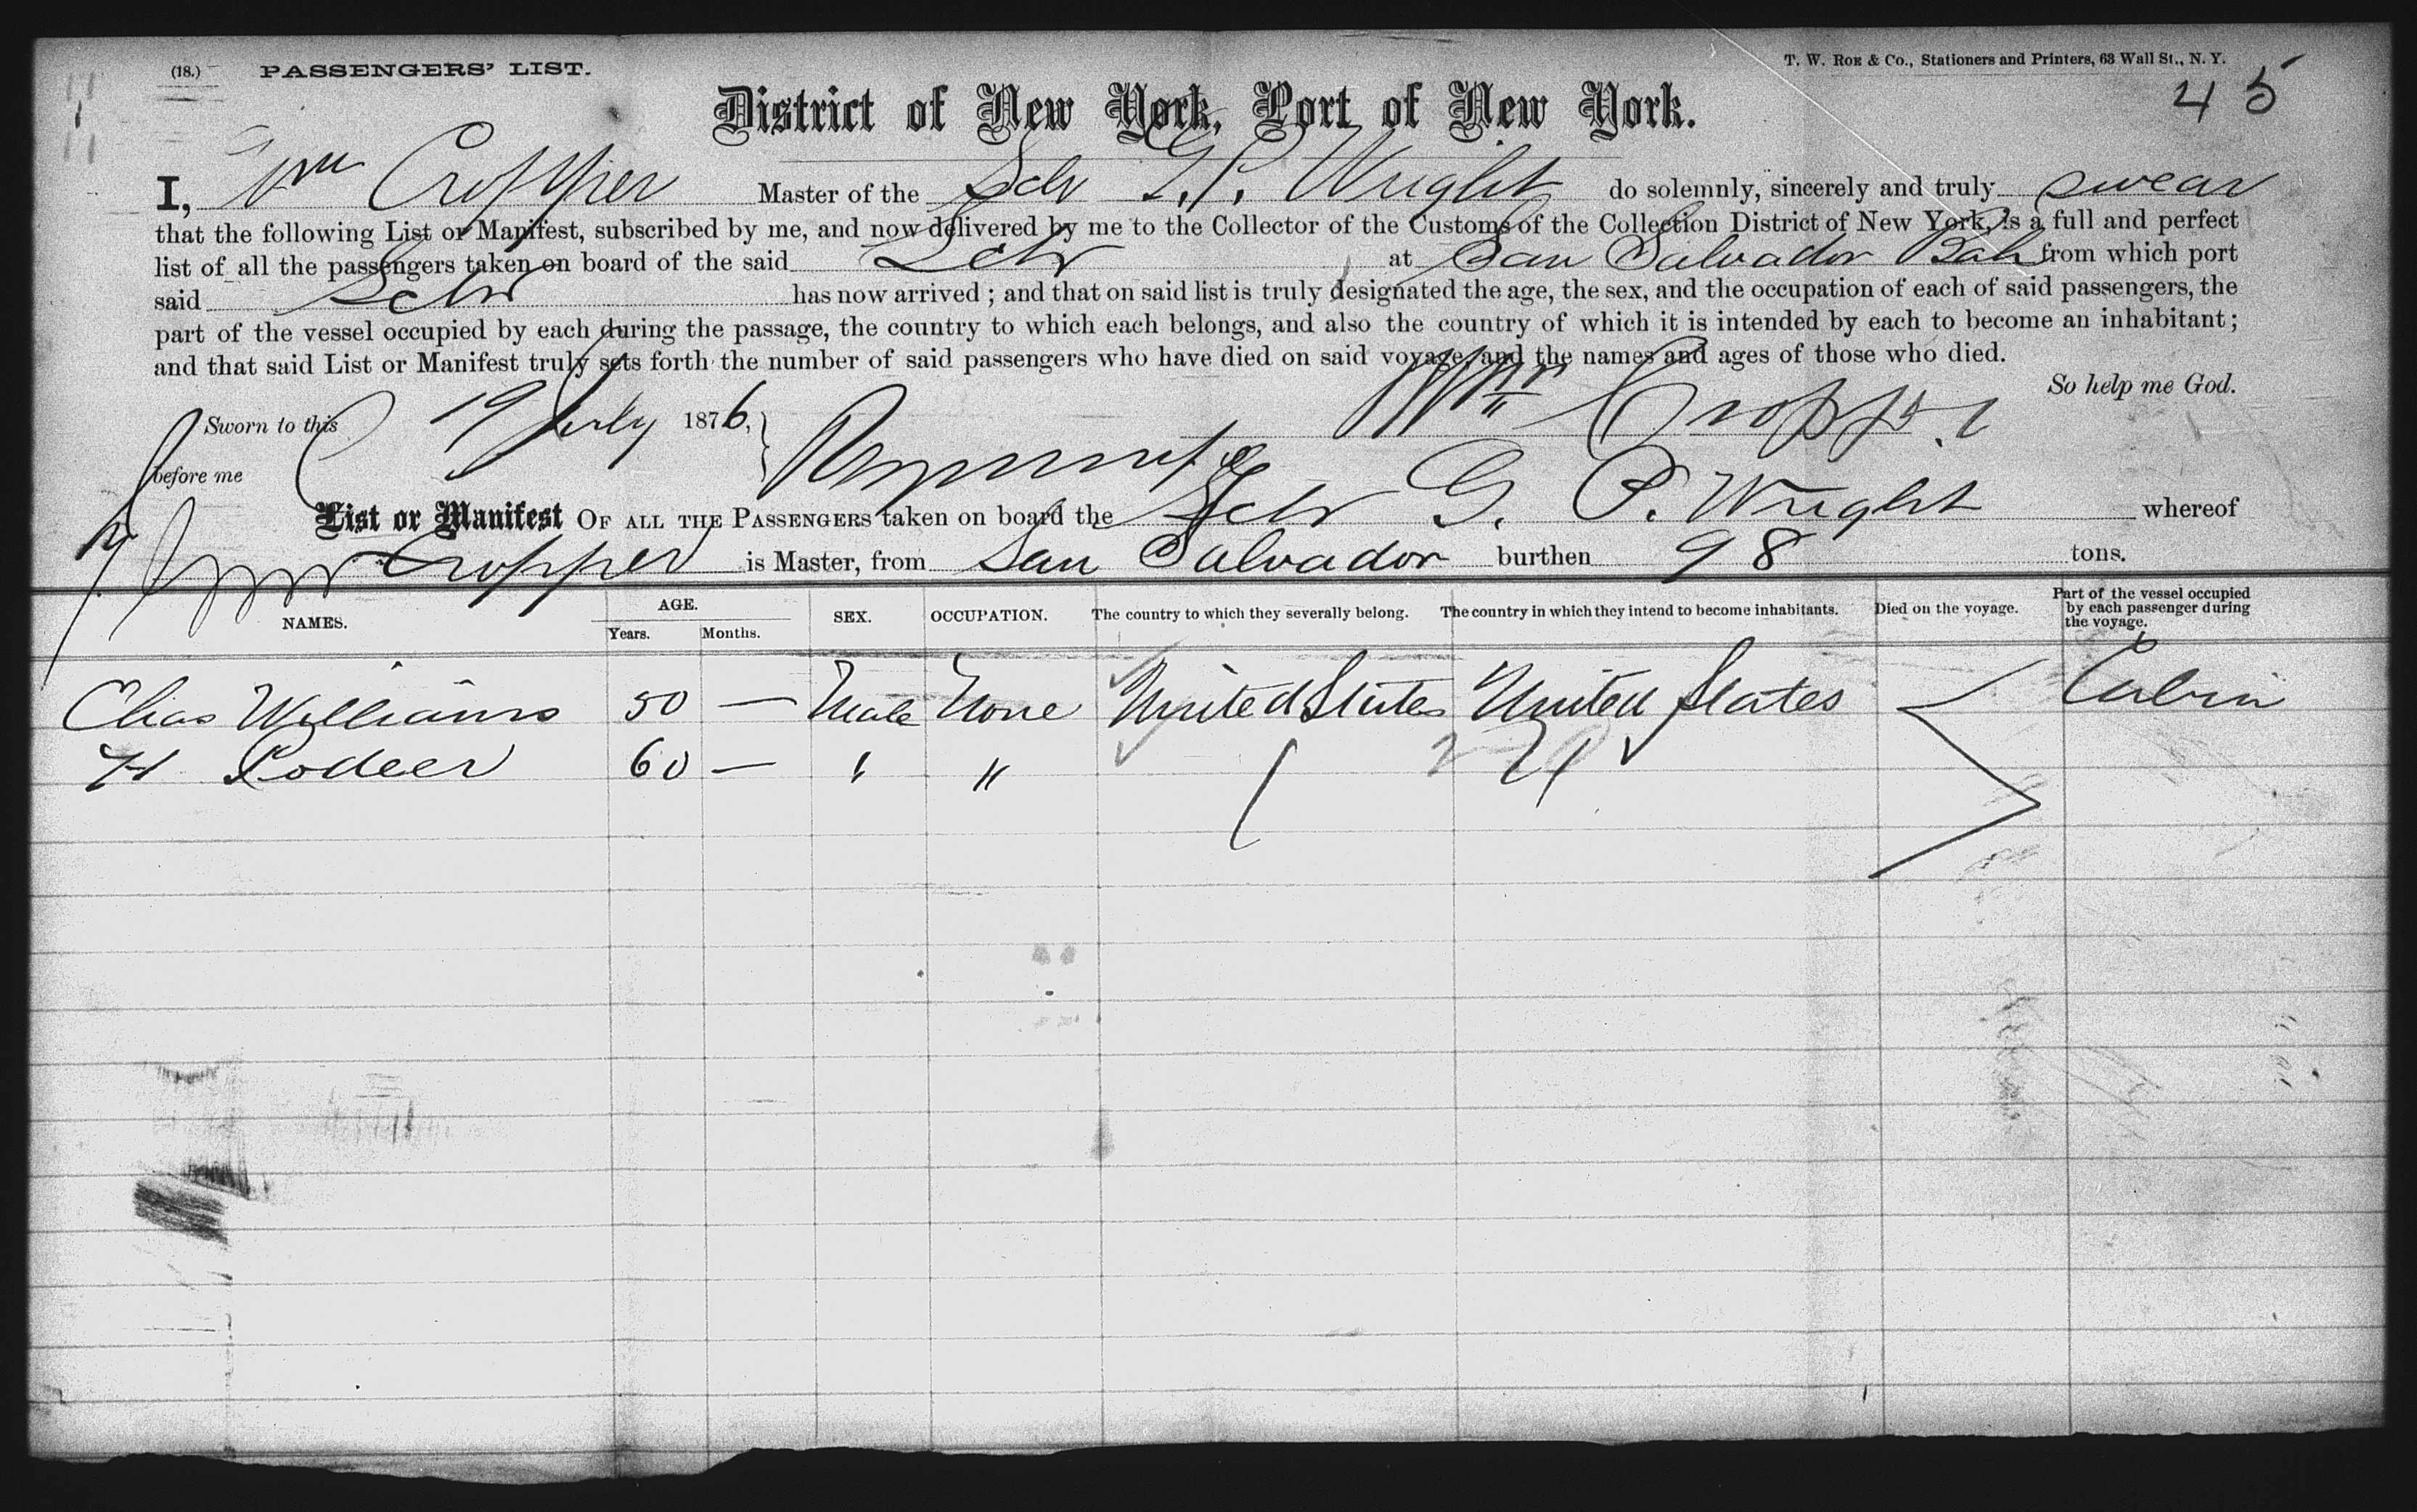 (18.) PASSENGERS' LIST.
T. W. Roe & Co., Stationers and Printers, 63 Wall St., N. Y.
45
District of New York, Port of New York.
I, Wm Cropper Master of the Schr G. P. Wright do solemnly, sincerely and truly swear
that the following List or Manifest, subscribed by me, and now delivered by me to the Collector of the Customs of the Collection District of New York, is a full and perfect
list of all the passengers taken on board of the said Schr at San Salvador Bah from which port
said Schr has now arrived; and that on said list is truly designated the age, the sex, and the occupation of each of said passengers, the
part of the vessel occupied by each during the passage, the country to which each belongs, and also the country of which it is intended by each to become an inhabitant;
and that said List or Manifest truly sets forth the number of said passengers who have died on said voyage, and the names and ages of those who died.
So help me God.
Sworn to this 19 July 1876, Wm Cropper
before me
List or Manifest OF ALL THE PASSENGERS taken on board the Schr G. P. Wright whereof
Wm Cropper is Master, from San Salvador burthen 98 tons.
NAMES. AGE. Years. Months. SEX. OCCUPATION. The country to which they severally belong. The country in which they intend to become inhabitants. Died on the voyage. Part of the vessel occupied by each passenger during the voyage.
Elias Williams 50 — Male None United States United States Cabin
H 60 — " "